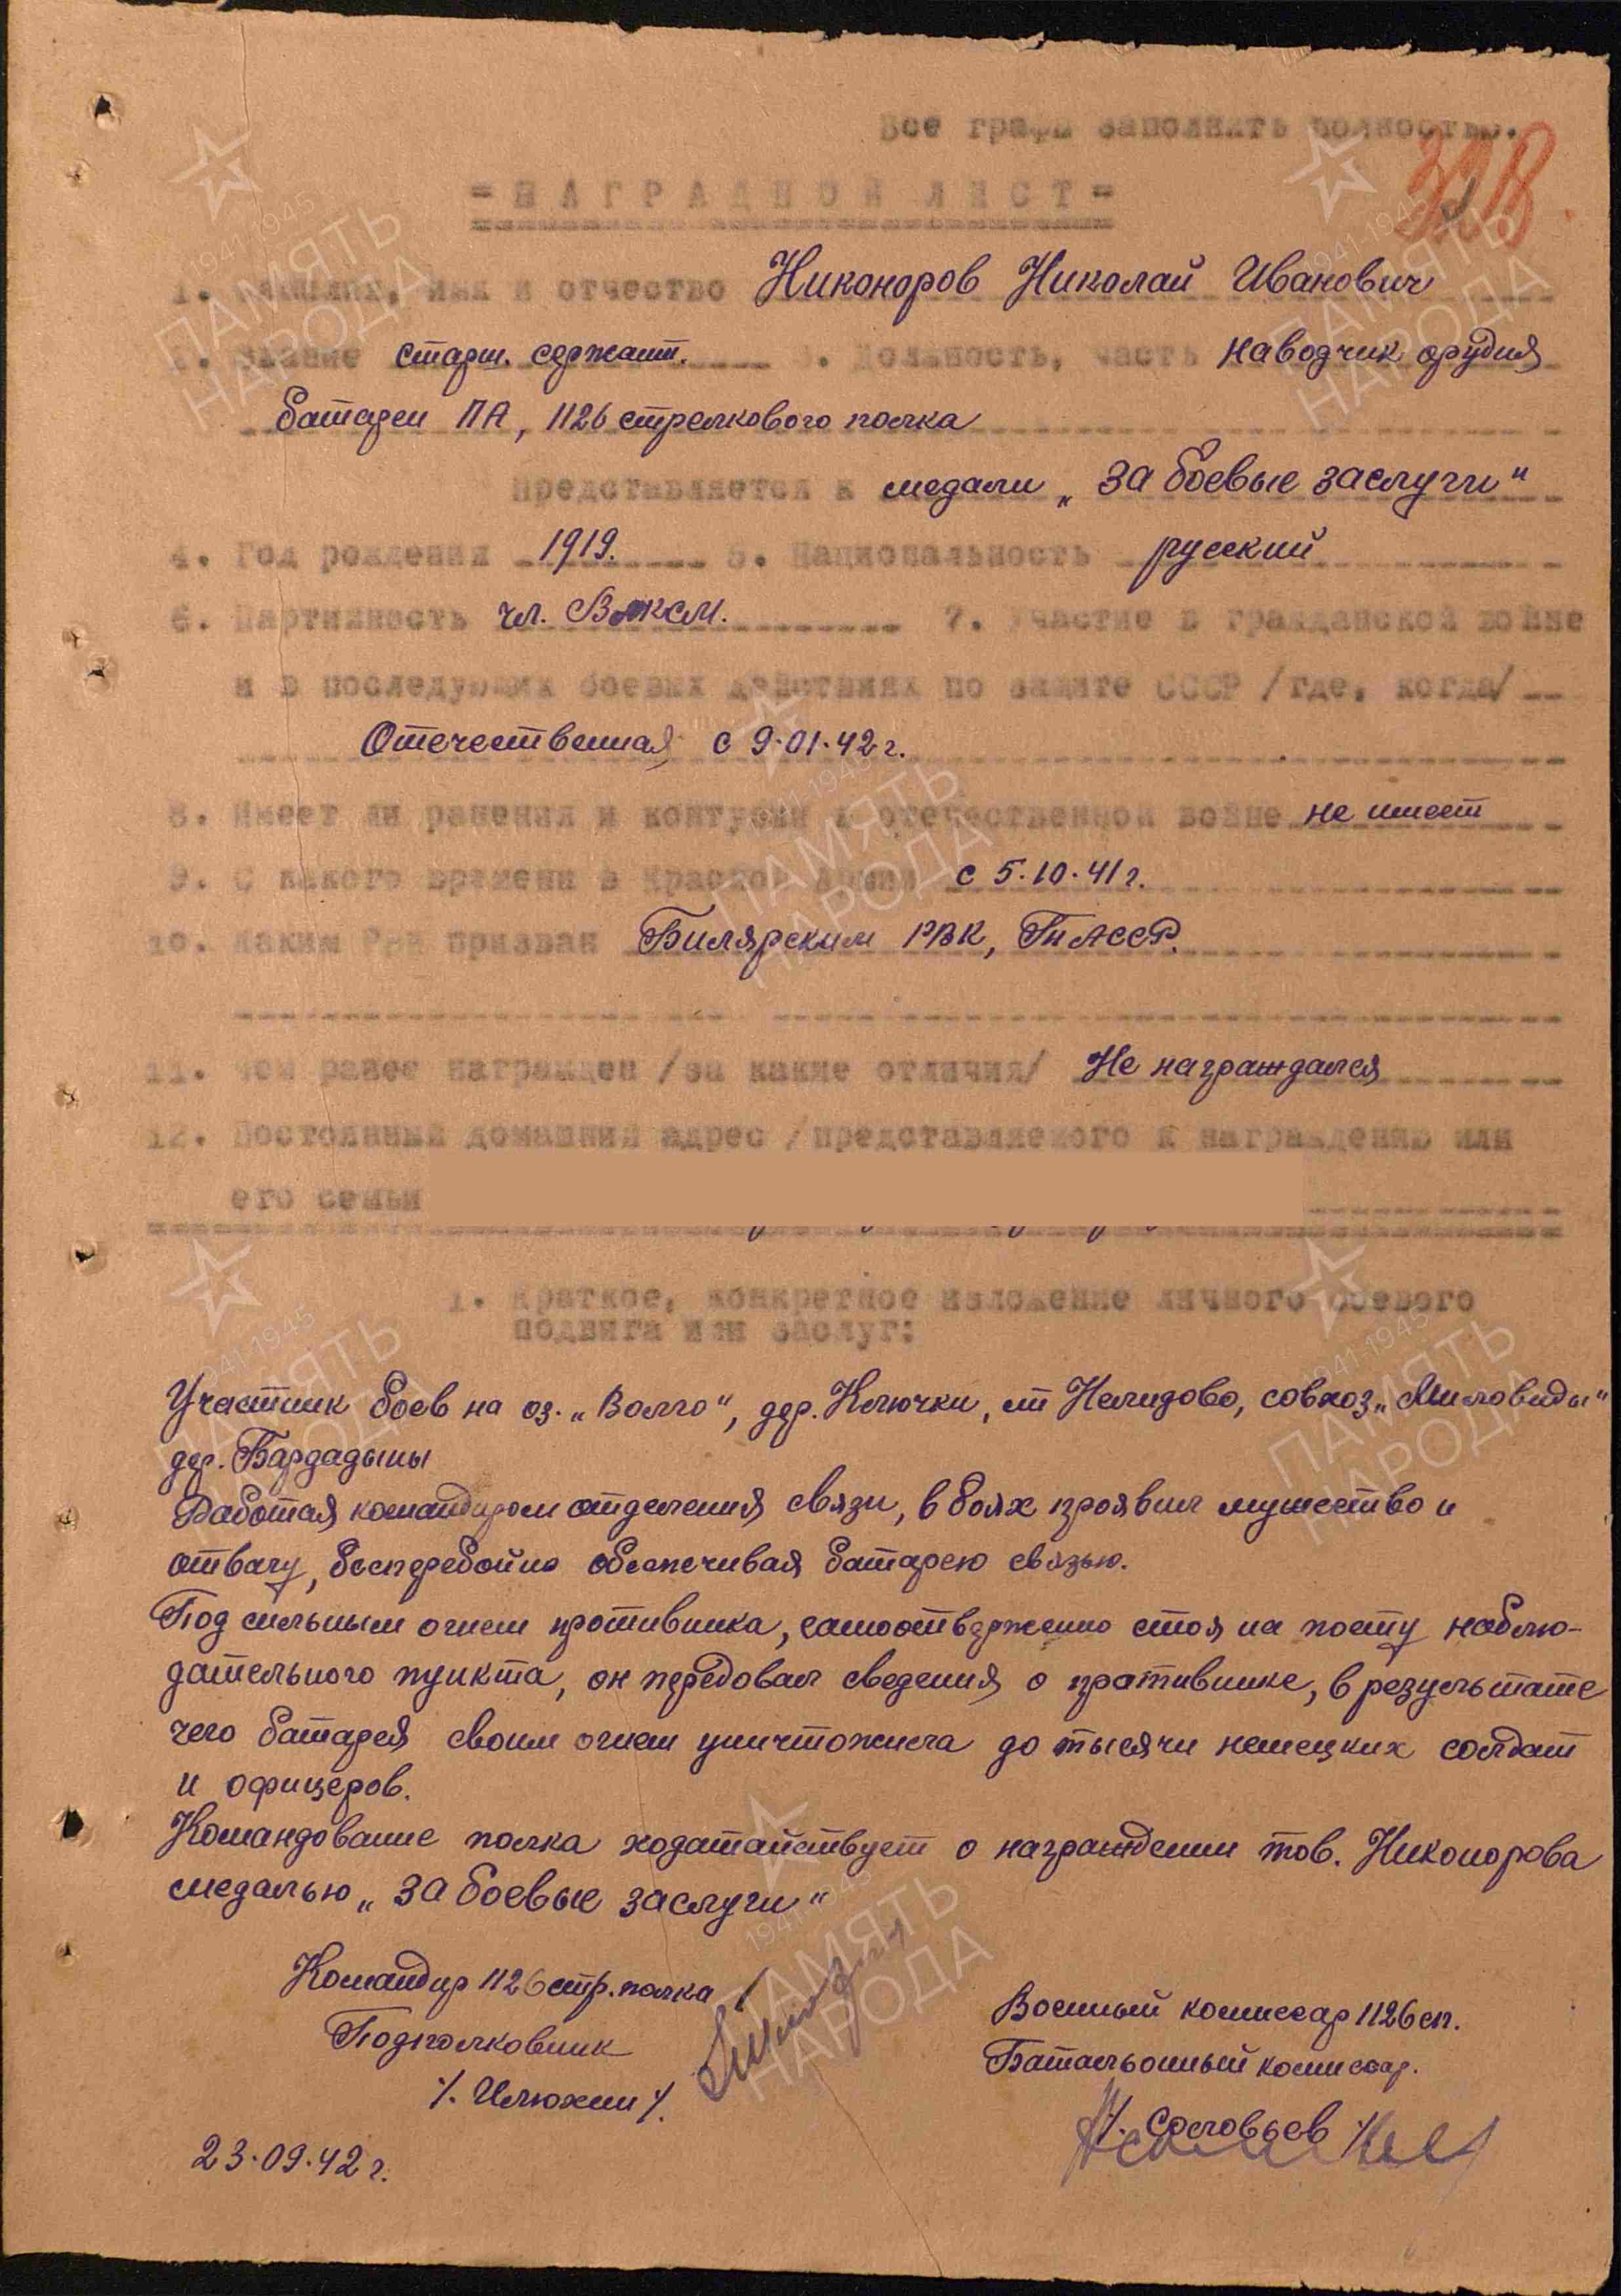 Все графы заполнять полностью.
= Н А Г Р А Д Н О Й Л И С Т =
1. Фамилия, имя и отчество Никоноров Николай Иванович
2. Звание старш. сержант. 3. Должность, часть наводчик орудия
батареи ПА, 1126 стрелкового полка
представляется к медали „За боевые заслуги"
4. Год рождения 1919. 5. Национальность русский
6. Партийность чл. ВЛКСМ. 7. Участие в гражданской войне
и в последующих боевых действиях по защите СССР /где, когда/
Отечественная с 9.01.42 г.
8. Имеет ли ранения и контузии в отечественной войне не имеет
9. С какого времени в Красной Армии с 5.10.41 г.
10. Каким РВК призван Билярским РВК, ТнАССР.
11. Чем ранее награжден /за какие отличия/ Не награждался
12. Постоянный домашний адрес /представляемого к награждению или
его семьи
1. Краткое, конкретное изложение личного боевого
подвига или заслуг:
Участник боев на оз. „Волго", дер. Ключки, ст Нелидово, совхоз „Миловиды"
дер. Бардадыны
Работая командиром отделения связи, в боях проявил мужество и
отвагу, бесперебойно обеспечивая батарею связью.
Под сильным огнем противника, самоотверженно стоя на посту наблю-
дательного пункта, он передовал сведения о противнике, в результате
чего батарея своим огнем уничтожила до тысячи немецких солдат
и офицеров.
Командование полка ходатайствует о награждении тов. Никонорова
медалью „За боевые заслуги"
Командир 1126 стр. полка
Подполковник
/. Илюхин /.
Военный комиссар 1126 сп.
Батальонный комиссар.
/. Соловьев /.
23.09.42 г.
1941-1945
ПАМЯТЬ
НАРОДА